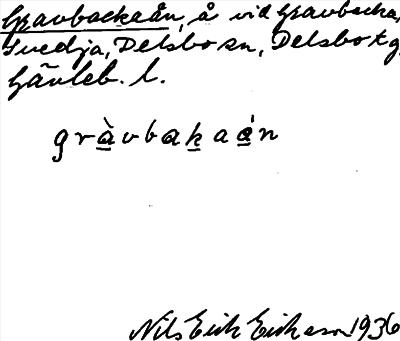 Gravbackaån, å vid Gravbacka,
Svedja, Delsbo sn, Delsbo tg
Gävleb. l.
gràvbakaán
Nils Erik Erikson 1936